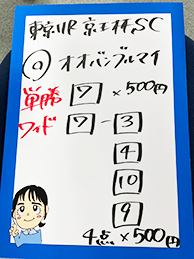 東京11R 京王杯SC
◎ オオバンブルマイ
単勝 7 ×500円
ワイド 7-3
4
10
9
4点×500円